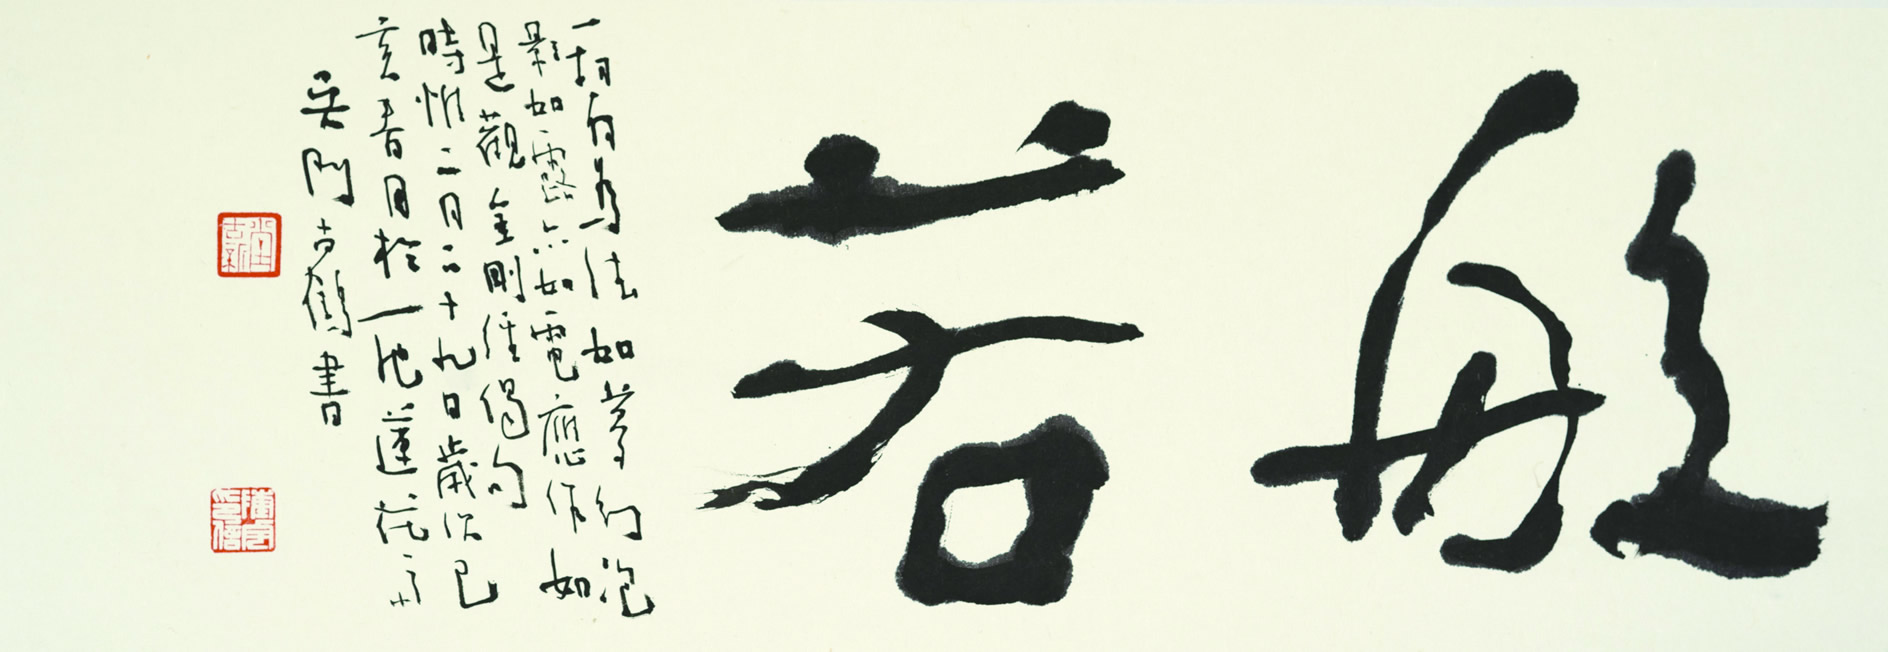 般若
一切有為法如夢幻泡
影如露亦如電應作如
是觀金剛經偈句
時惟二月二十九日歲次己
亥春月於一池蓮花
吳門古鶴書